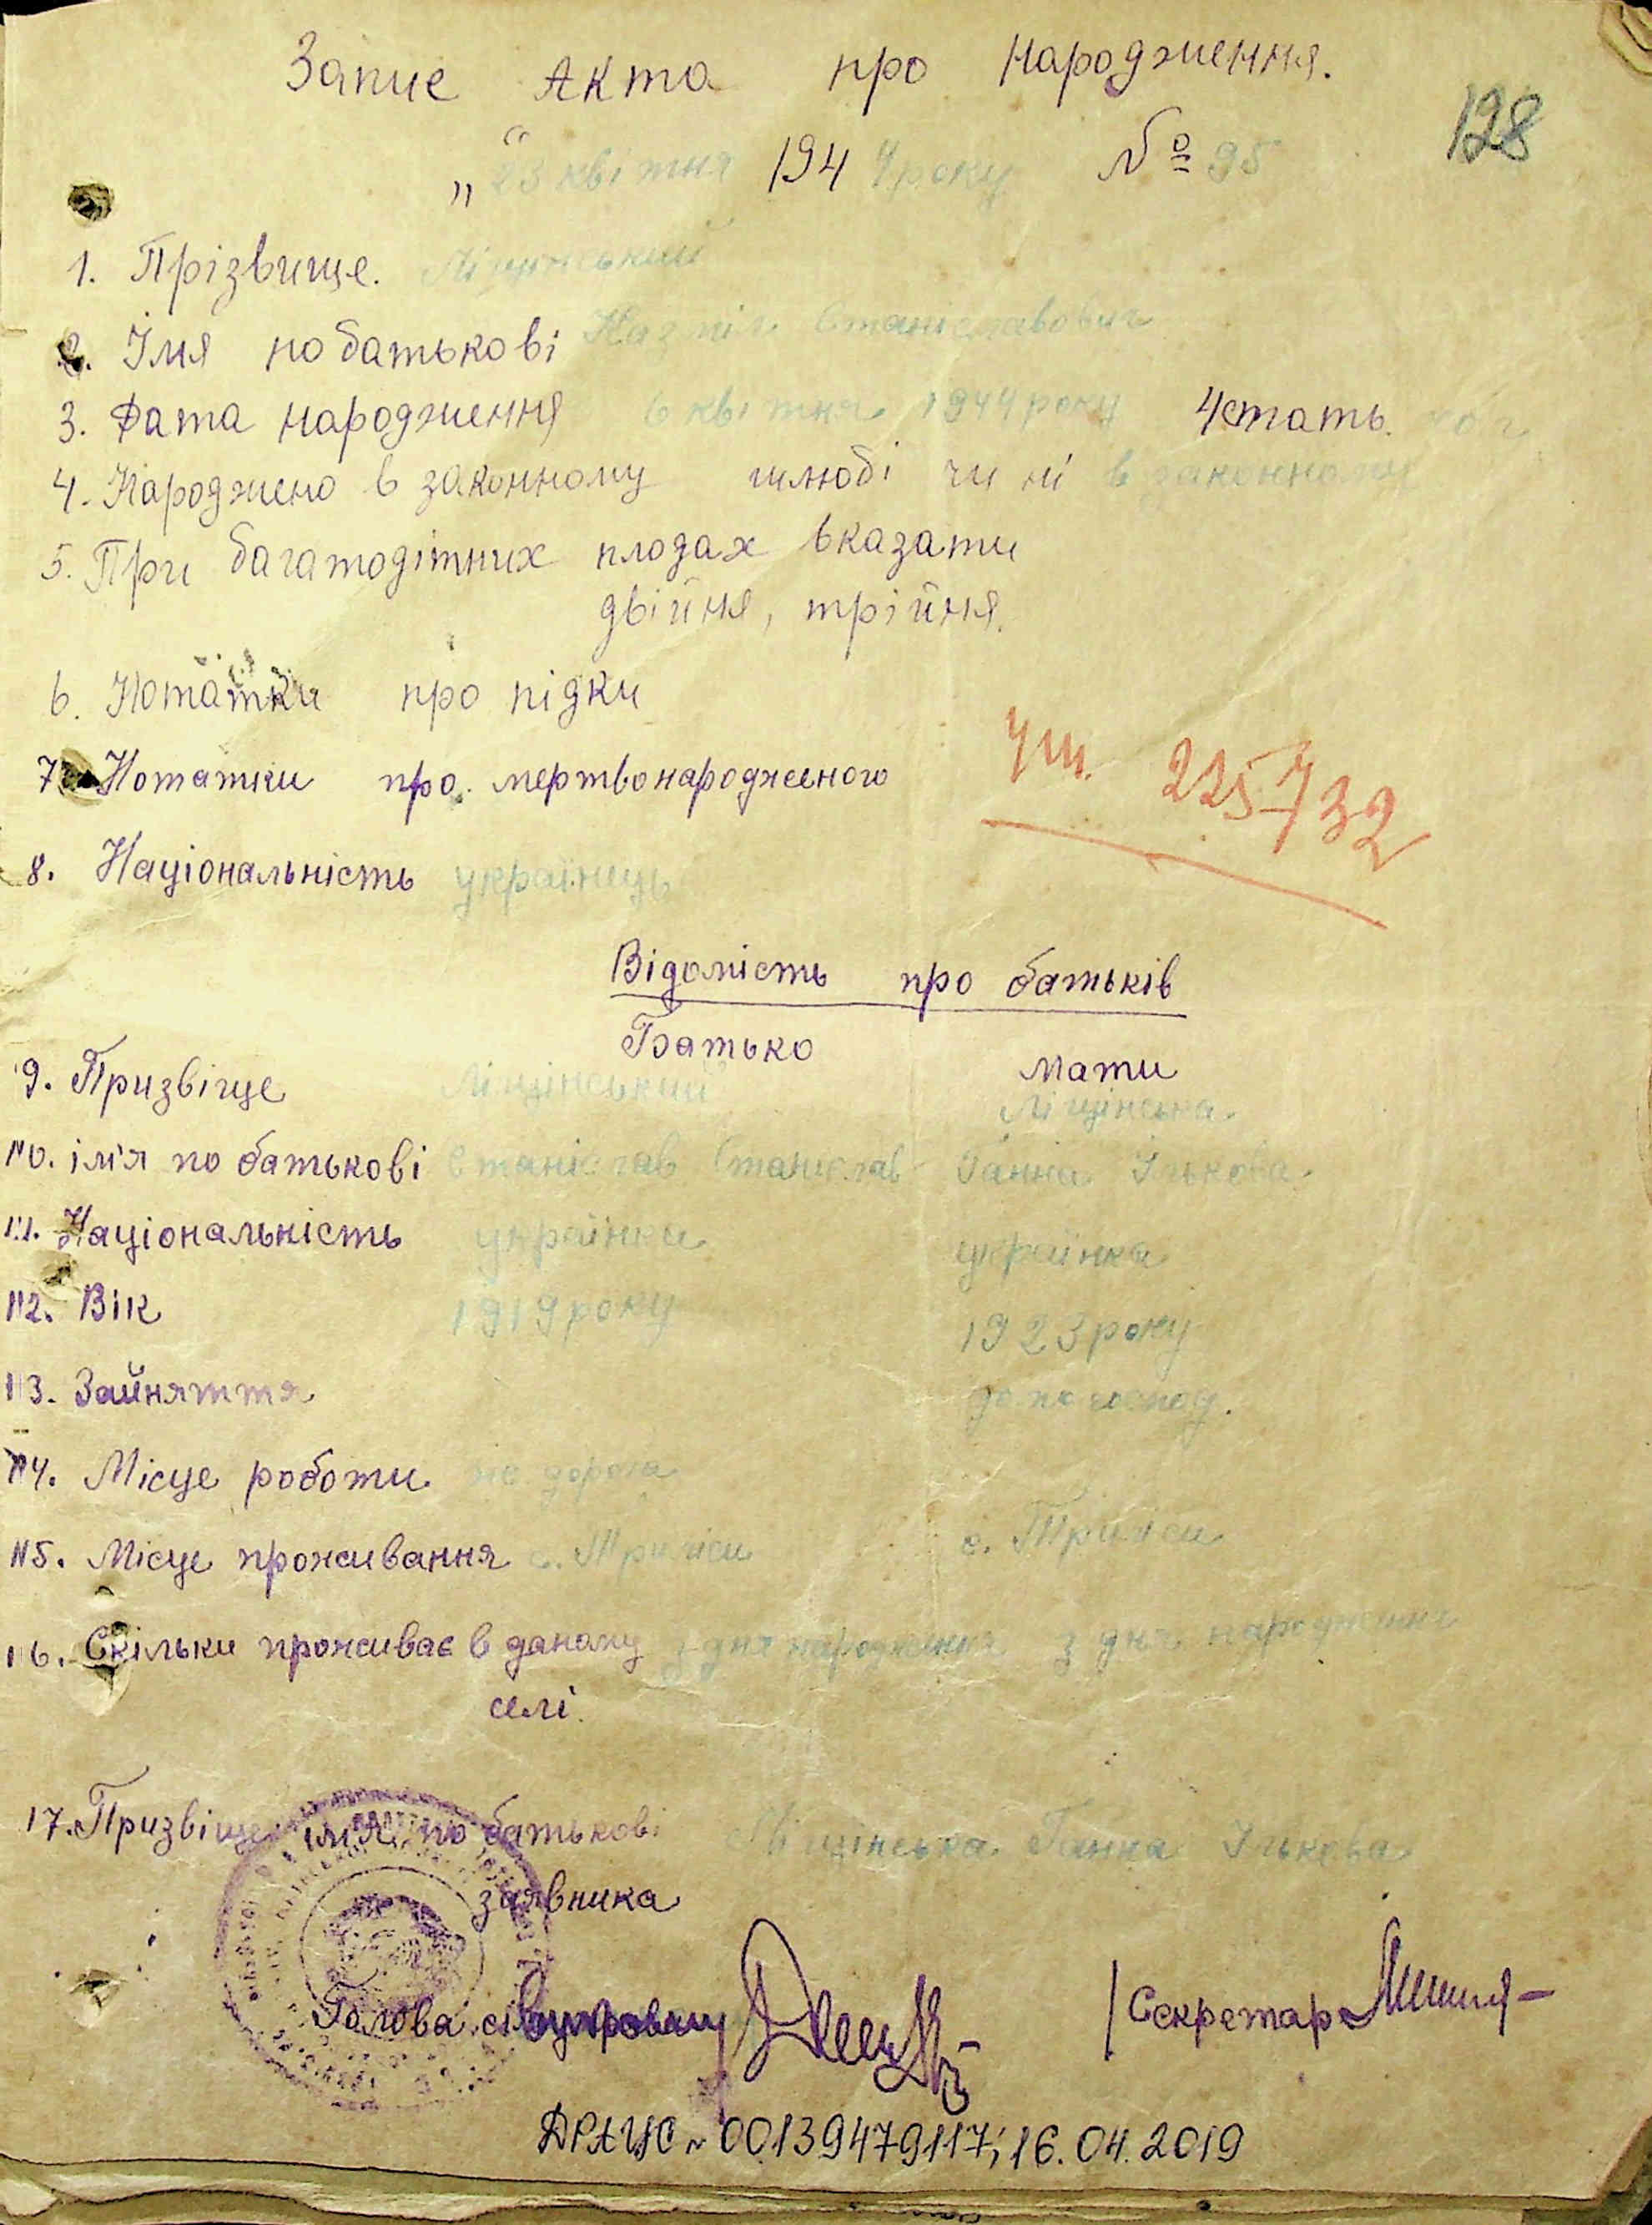 Запис Акта про народження.
128
" 23 квітня 1944 року № 95
1. Прізвище. Ліщінський
2. Імя по батькові Казмір Станіславович
3. Дата народження 6 квітня 1944 року 4 стать. чол
4. Народжено в законному шлюбі чи ні в законному
5. При багатодітних плодах вказати
двійня, трійня.
6. Нотатки про підки
7. Нотатки про мертвонародженого
чш. 225732
8. Національність українець
Відомість про батьків
Батько Мати
9. Призвіще Ліщінський Ліщінська
10. ім'я по батькові Станіслав Станіслав ГаннаІлькова
11. Національність українка українка
12. Вік 1919 року 1923 року
13. Зайняття господ.
14. Місце роботи
15. Місце проживання с. с.
16. Скільки проживає в даному з дня народження з дня народження
селі.
17. Призвіще імя по батькові Ліщінська ГаннаІлькова
заявника
Голова
Секретар
ДРАЦС № 00139479117; 16.04.2019